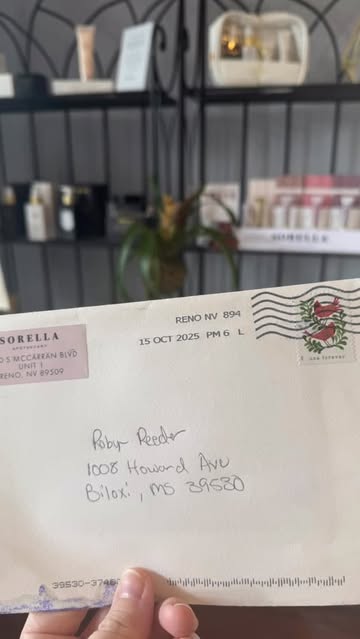 SORELLA
SORELLA
APOTHECARY
S MCCARRAN BLVD
UNIT 1
RENO, NV 89509
RENO NV 894
15 OCT 2025 PM 6 L
forever
Robyn Reeder
1008 Howard Ave
Biloxi, MS 39530
39530-